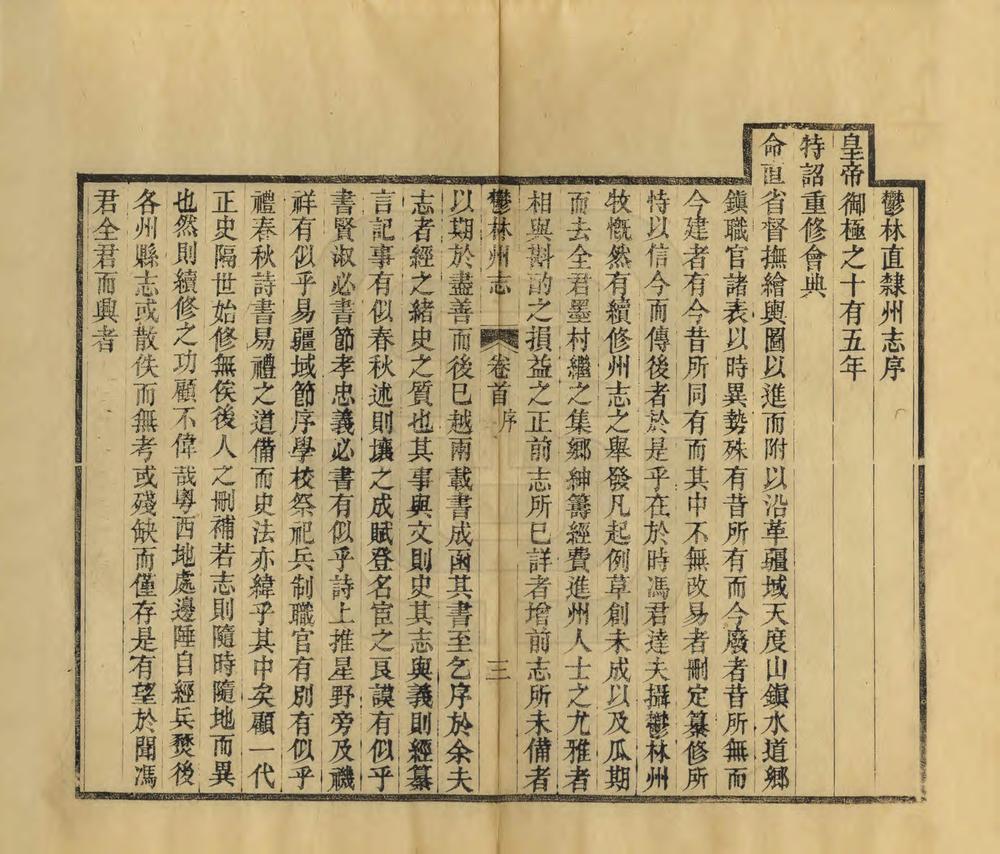 鬱林直隸州志序
皇帝御極之十有五年
特詔重修會典
命直省督撫繪輿圖以進而附以沿革疆域天度山鎭水道鄉
鎭職官諸表以時異勢殊有昔所有而今廢者昔所無而
今建者有今昔所同有而其中不無改易者刪定纂修所
恃以信今而傳後者於是乎在於時馮君達夫攝鬱林州
牧慨然有續修州志之舉發凡起例草創未成以及瓜期
而去全君墨村繼之集鄉紳籌經費進州人士之尤雅者
相與斟酌之損益之正前志所已詳者增前志所未備者
鬱林州志 卷首 序 三
以期於盡善而後已越兩載書成函其書至乞序於余夫
志者經之緒史之質也其事與文則史其志與義則經纂
言記事有似春秋述則壤之成賦登名宦之良謨有似乎
書賢淑必書節孝忠義必書有似乎詩上推星野旁及禨
祥有似乎易疆域節序學校祭祀兵制職官有別有似乎
禮春秋詩書易禮之道備而史法亦緯乎其中矣顧一代
正史隔世始修無俟後人之刪補若志則隨時隨地而異
也然則續修之功顧不偉哉粵西地處邊陲自經兵燹後
各州縣志或散佚而無考或殘缺而僅存是有望於聞馮
君全君而興者